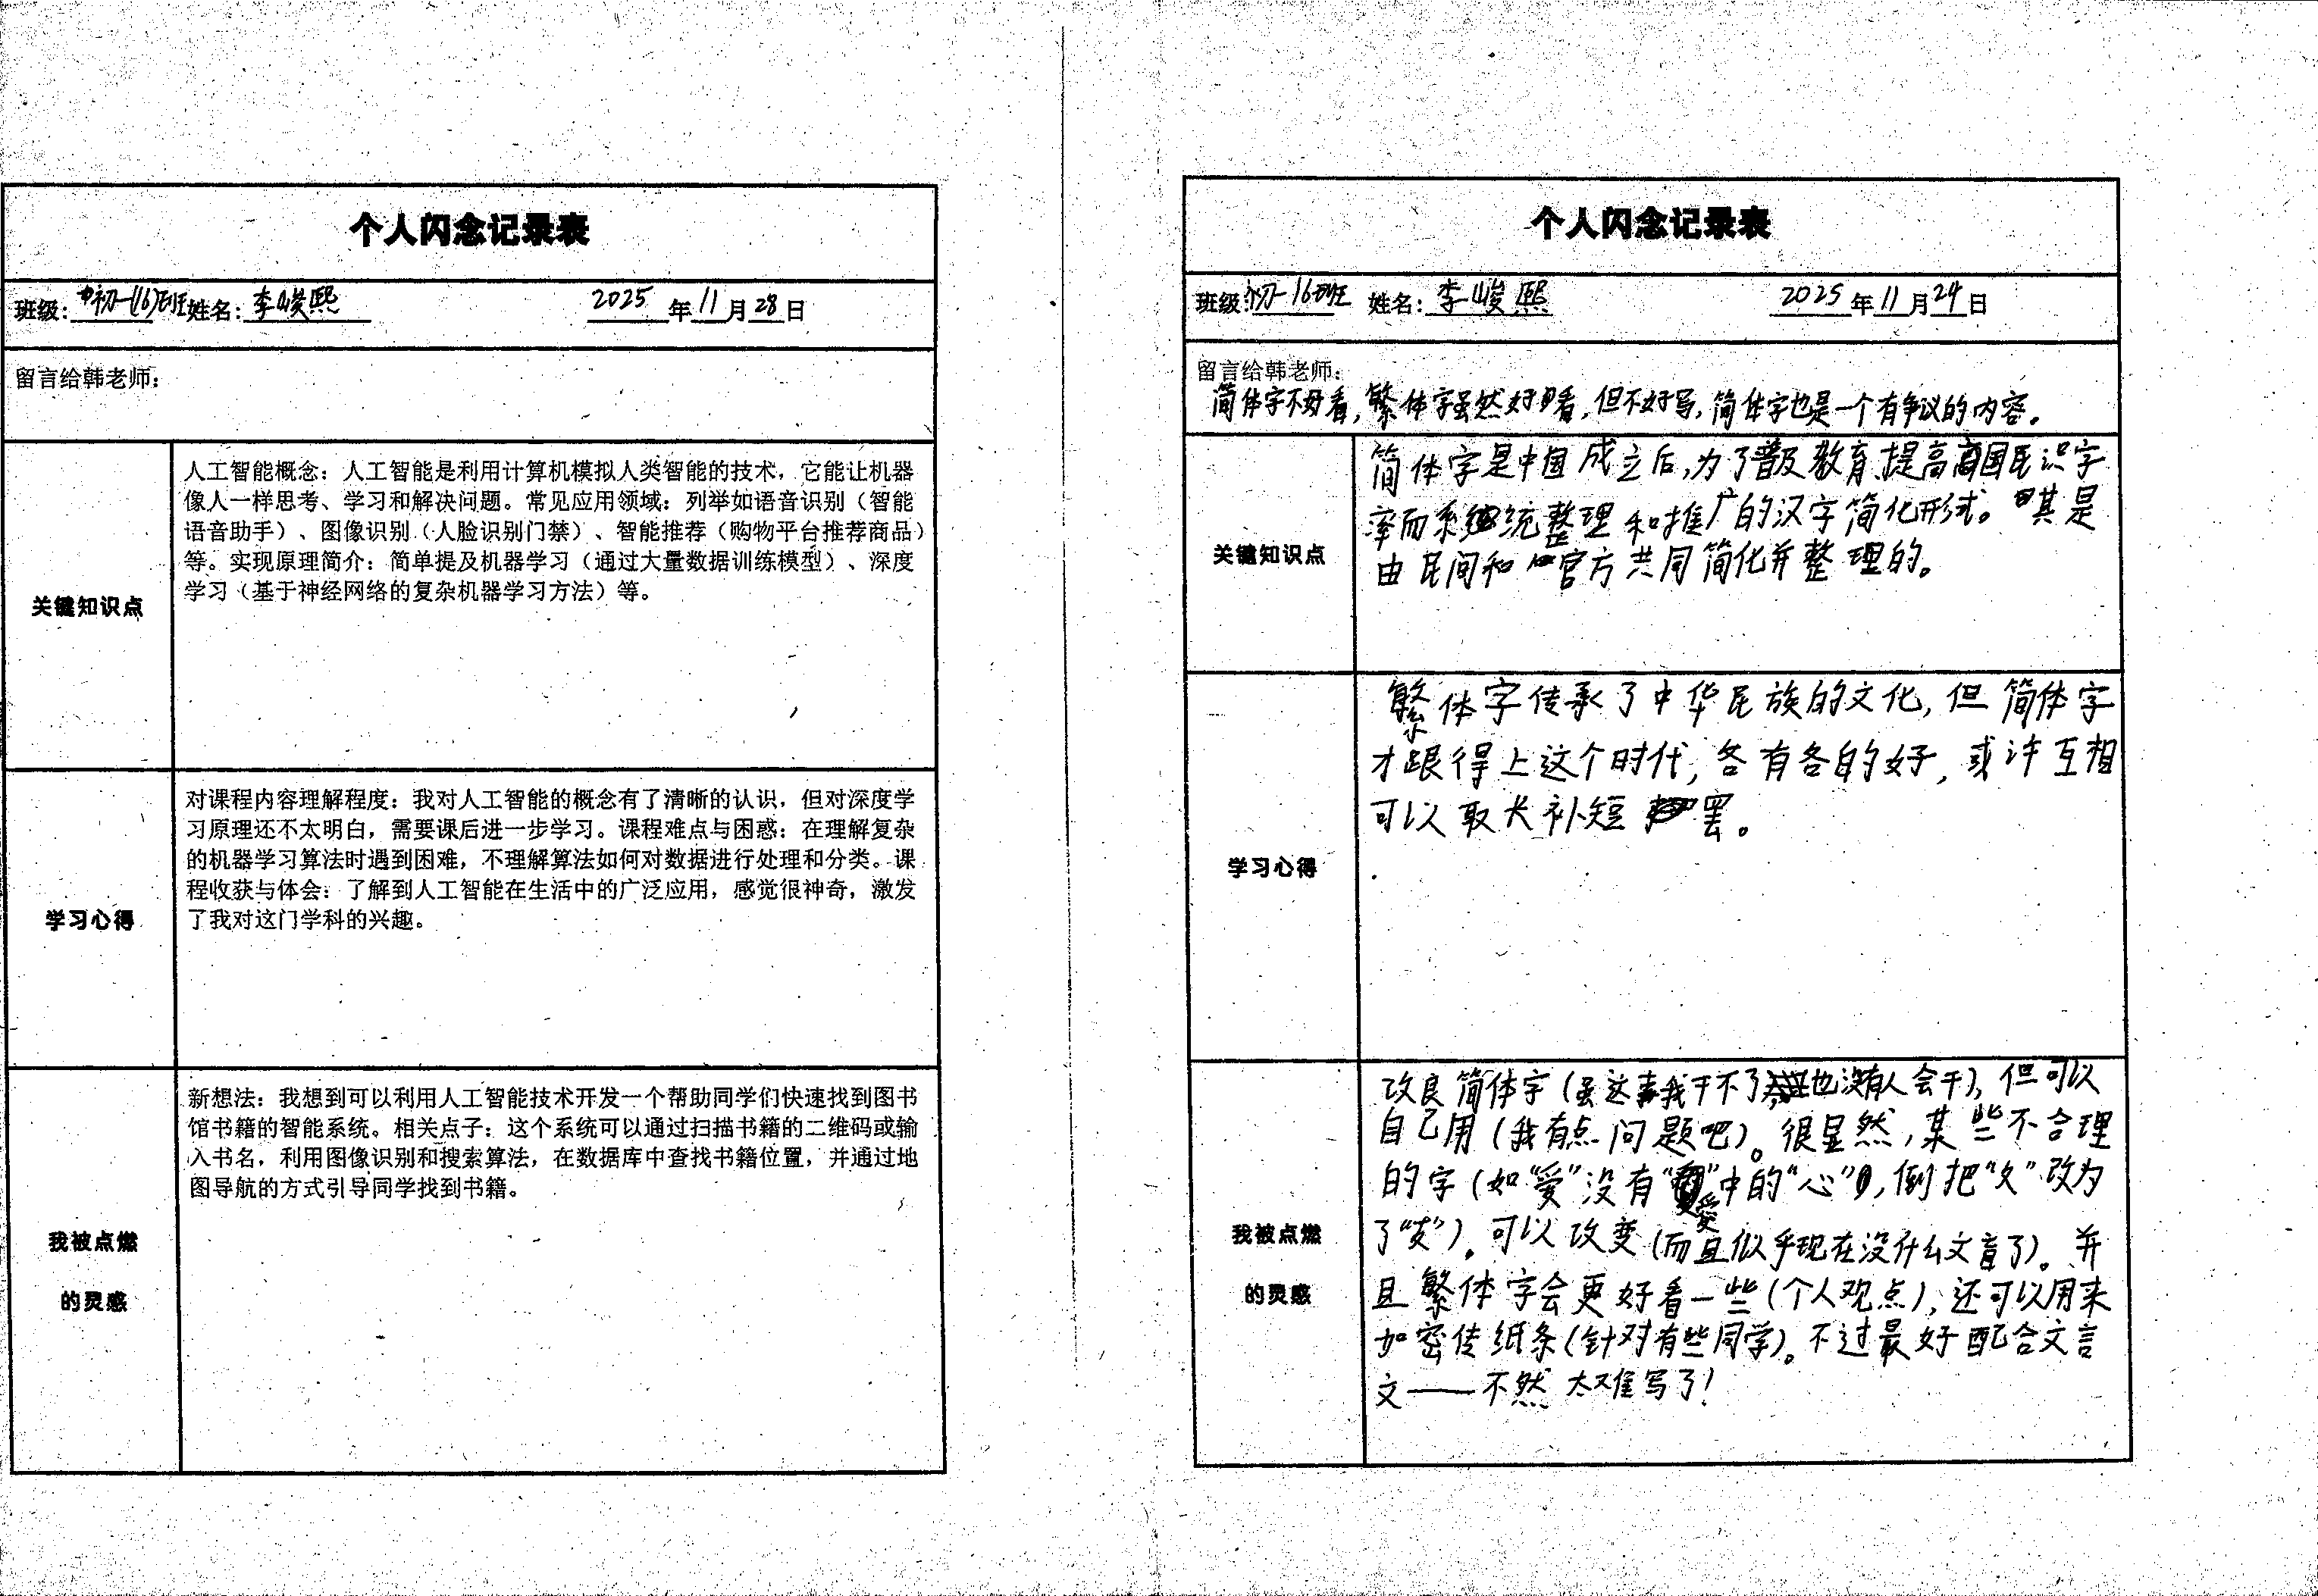 个人闪念记录表
班级：初一(16)班姓名：李峻熙 2025年11月28日
留言给韩老师：
关键知识点
人工智能概念：人工智能是利用计算机模拟人类智能的技术，它能让机器
像人一样思考、学习和解决问题。常见应用领域：列举如语音识别（智能
语音助手）、图像识别（人脸识别门禁）、智能推荐（购物平台推荐商品）
等。实现原理简介：简单提及机器学习（通过大量数据训练模型）、深度
学习（基于神经网络的复杂机器学习方法）等。
学习心得
对课程内容理解程度：我对人工智能的概念有了清晰的认识，但对深度学
习原理还不太明白，需要课后进一步学习。课程难点与困惑：在理解复杂
的机器学习算法时遇到困难，不理解算法如何对数据进行处理和分类。课
程收获与体会：了解到人工智能在生活中的广泛应用，感觉很神奇，激发
了我对这门学科的兴趣。
我被点燃
的灵感
新想法：我想到可以利用人工智能技术开发一个帮助同学们快速找到图书
馆书籍的智能系统。相关点子：这个系统可以通过扫描书籍的二维码或输
入书名，利用图像识别和搜索算法，在数据库中查找书籍位置，并通过地
图导航的方式引导同学找到书籍。
个人闪念记录表
班级：初一16班 姓名：李峻熙 2025年11月24日
留言给韩老师：
简体字不好看，繁体字虽然好看，但不好写，简体字也是一个有争议的内容。
关键知识点
简体字是中国成立后，为了普及教育、提高国民识字
率而系统整理和推广的汉字简化形式。其是
由民间和官方共同简化并整理的。
学习心得
繁体字传承了中华民族的文化，但简体字
才跟得上这个时代，各有各的好，或许互相
可以取长补短罢。
我被点燃
的灵感
改良简体字（虽这事我干不了，也没有人会干），但可以
自己用（我有点问题吧）。很显然，某些不合理
的字（如“爱”没有“愛”中的“心”，倒把“夂”改为
了“友”）。可以改变（而且似乎现在没什么文盲了）。并
且繁体字会更好看一些（个人观点），还可以用来
加密传纸条（针对有些同学）。不过最好配合文言
文——不然太难写了！